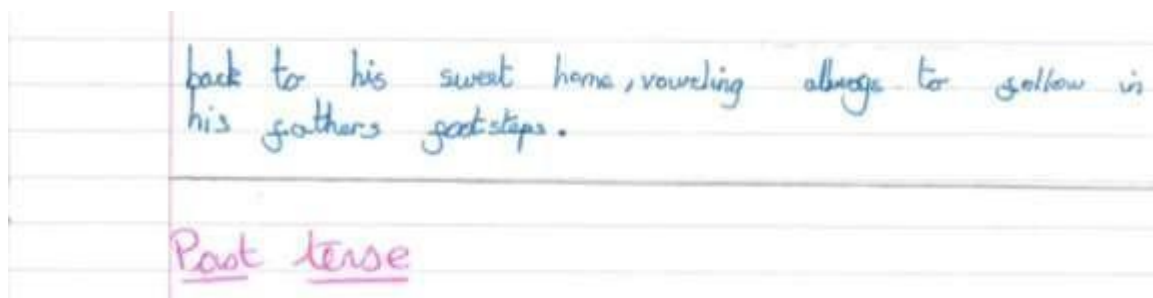 back to his sweet home, voweling always to follow in
his fathers footsteps.
Past tense